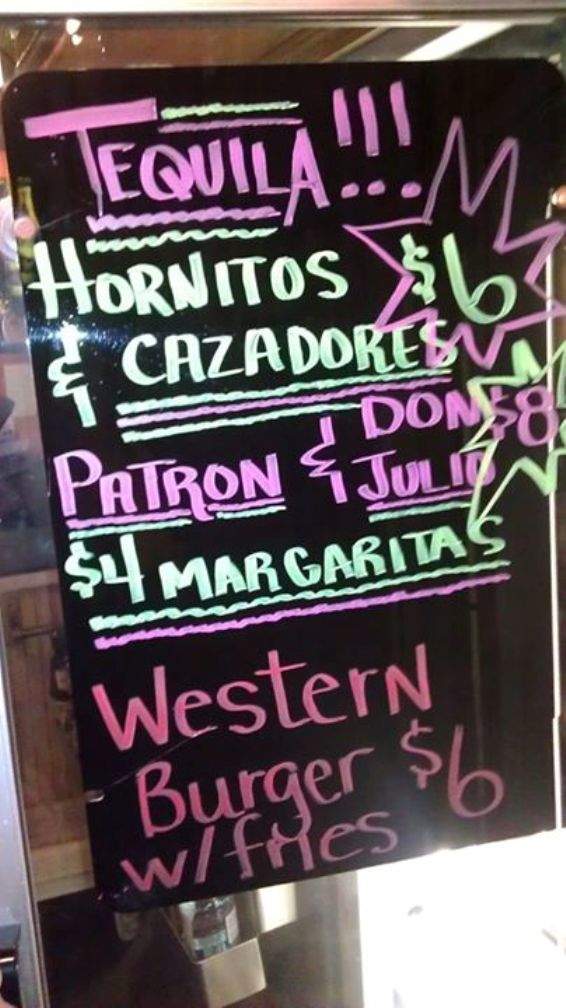 TEQUILA!!!...
HORNITOS $6
& CAZADORES
PATRON & DON JULIO $8
$4 MARGARITAS
Western
Burger $6
w/fries